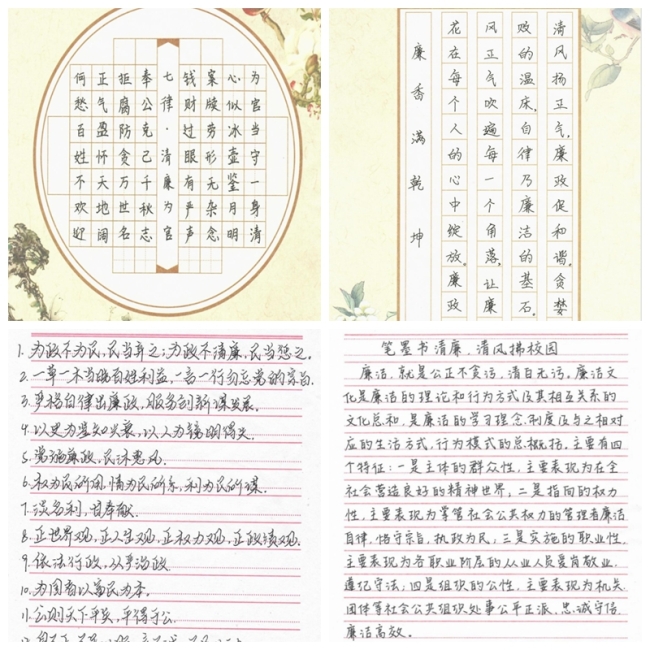 为官当守一身清
心似冰壶鉴月明
案牍劳形无杂念
钱财过眼有严声
七律·清廉为官
奉公克己千秋志
拒腐防贪万世名
正气盈怀天地阔
何愁百姓不欢迎
清风扬正气,廉政促和谐。贪婪
败的温床,自律乃廉洁的基石。
风正气吹遍每一个角落,让廉
花在每个人的心中绽放。廉政
廉香满乾坤
1. 为政不为民,民当弃之;为政不清廉,民当惩之。
2. 一草一木当晓百姓利益,一言一行勿忘党的宗旨。
3. 严格自律出廉政,服务创新谋发展。
4. 以史为鉴知兴衰,以人为镜明得失。
5. 党施廉政,民沐惠风。
6. 权为民所用,情为民所系,利为民所谋。
7. 淡名利,甘奉献。
8. 正世界观,正人生观,正权力观,正政绩观。
9. 依法行政,从严治政。
10. 为国者以富民为本。
11. 公则天下平矣,平得于公。
笔墨书清廉,清风拂校园
廉洁,就是公正不贪污,清白无污。廉洁文
化是廉洁的理论和行为方式及其相互关系的
文化总和,是廉洁的学习理念、制度及与之相对
应的生活方式,行为模式的总概括。主要有四
个特征:一是主体的群众性,主要表现为在全
社会营造良好的精神世界,二是指向的权力
性,主要表现为掌管社会公共权力的管理者廉洁
自律、恪守宗旨、执政为民;三是实施的职业性,
主要表现为各职业阶层的从业人员爱岗敬业、
遵纪守法;四是组织的公性,主要表现为机关
团体等社会公共组织处事公平正派、忠诚守信、
廉洁高效。